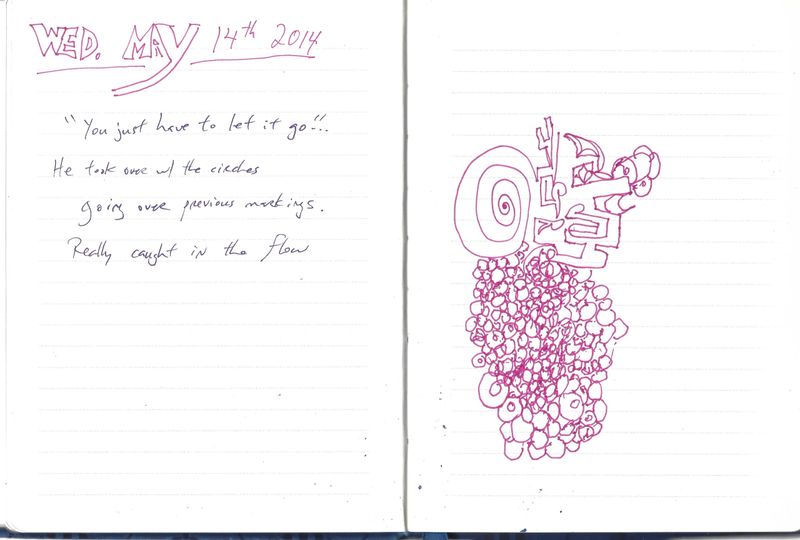 WED. MAY 14th 2014
"You just have to let it go"...
He took over w/ the circles
going over previous markings.
Really caught in the flow